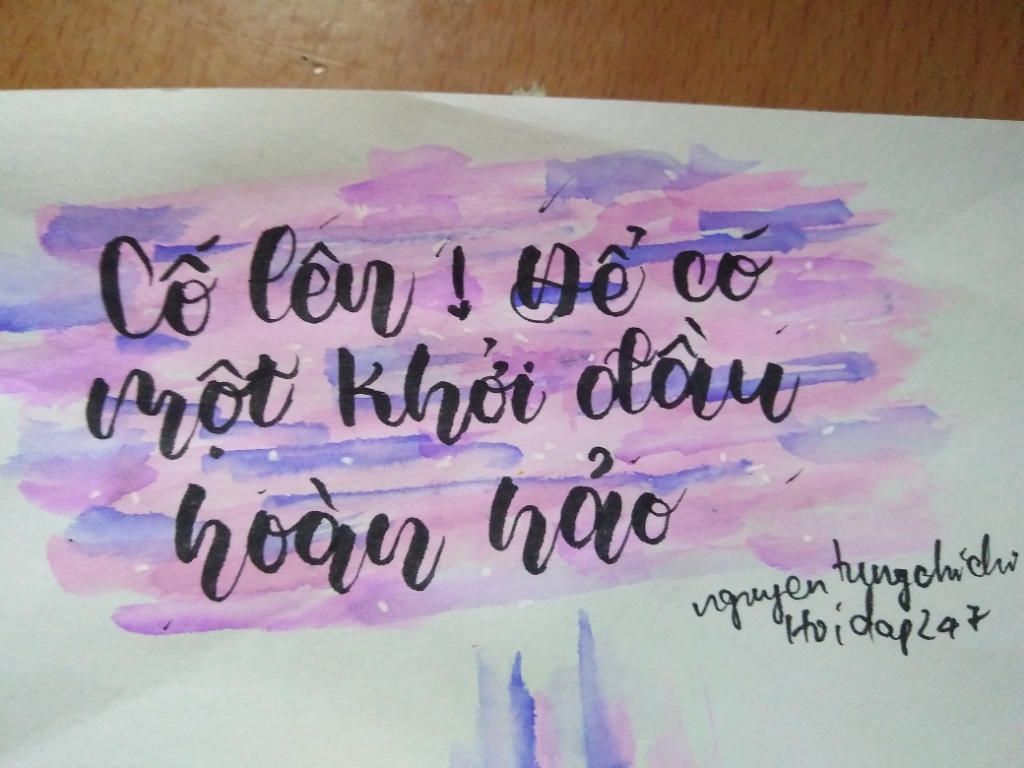 Cố lên! Để có
một khởi đầu
hoàn hảo
nguyentungchichi
Hoidap247